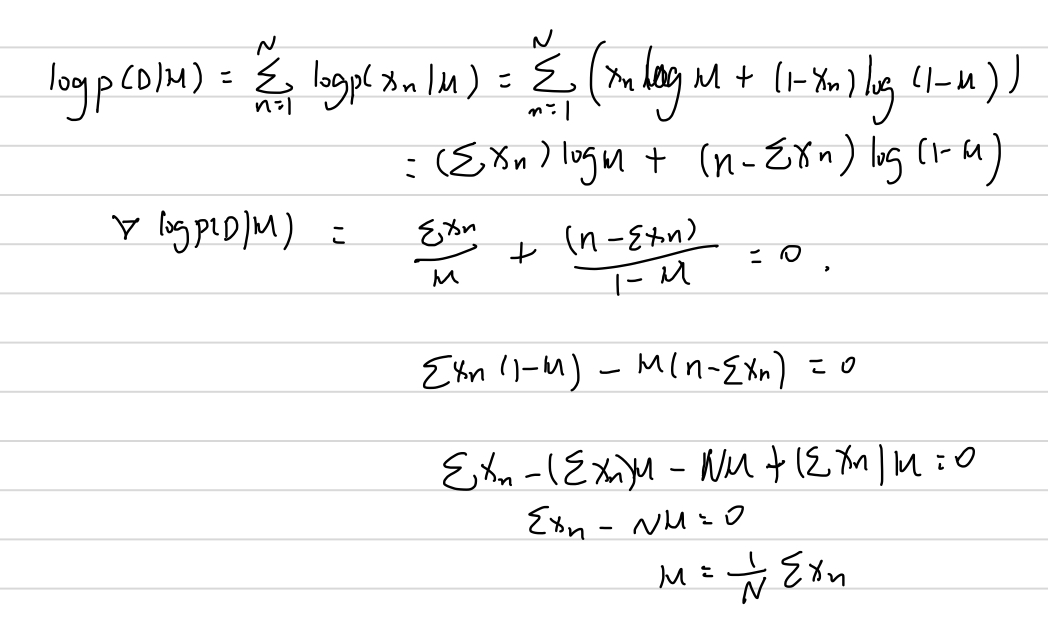 log p(D|μ) = Σ_{n=1}^{N} log p(x_n|μ) = Σ_{n=1}^{N} (x_n log μ + (1-x_n) log (1-μ))
= (Σx_n) log μ + (n-Σx_n) log (1-μ)
∇ log p(D|μ) = Σx_n/μ + (n-Σx_n)/(1-μ) = 0.
Σx_n (1-μ) - μ(n-Σx_n) = 0
Σx_n - (Σx_n)μ - Nμ + (Σx_n)μ = 0
Σx_n - Nμ = 0
μ = 1/N Σx_n